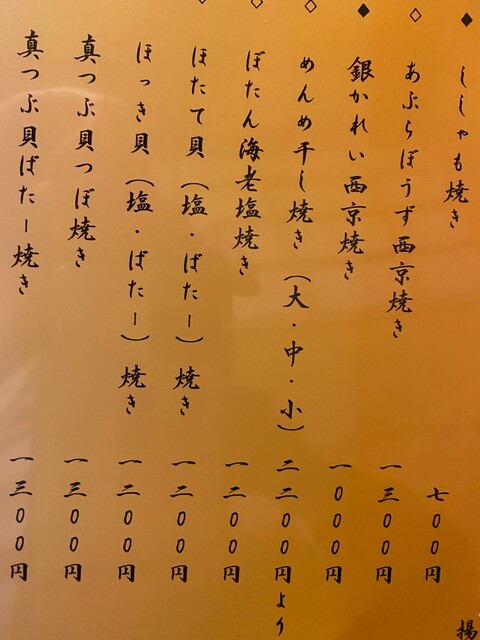 ししゃも焼き 七00円
あぶらぼうず西京焼き 一三00円
銀かれい西京焼き 一000円
めんめ干し焼き(大・中・小) 二二00円より
ぼたん海老塩焼き 一二00円
ほたて貝(塩・ばたー)焼き 一二00円
ほっき貝(塩・ばたー)焼き 一二00円
真つぶ貝つぼ焼き 一三00円
真つぶ貝ばたー焼き 一三00円
揚